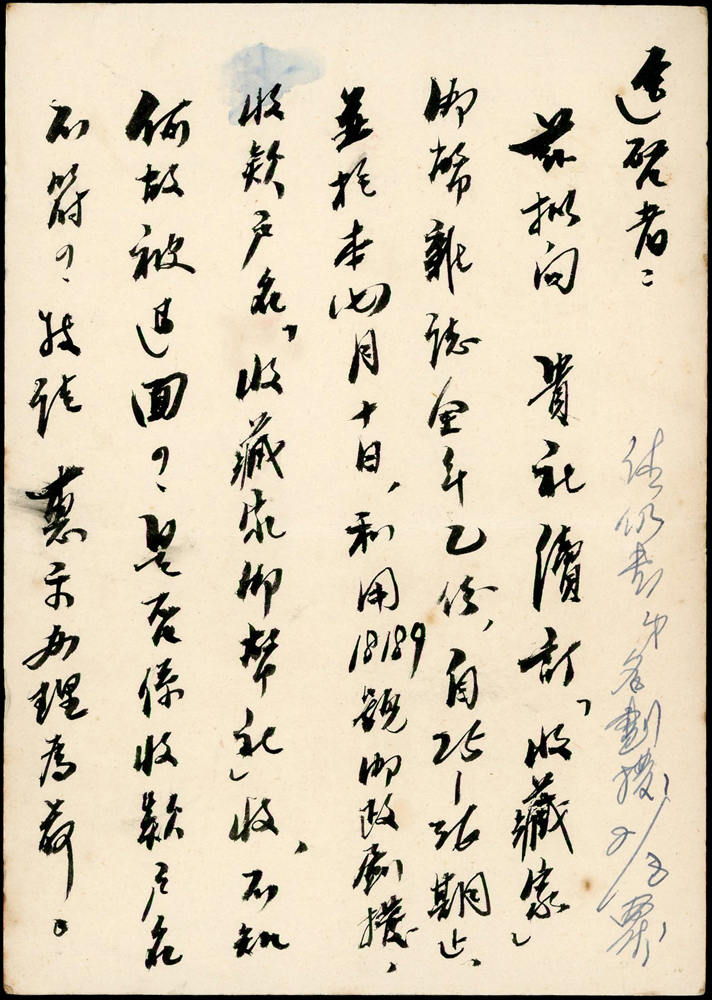 逕啓者：
茲擬向 貴社續訂「收藏家」
郵幣雜誌全年乙份，自25－36期止，
並於本四月十日，利用18189號郵政劃撥，
收款戶名「收藏家郵幣社」收，不知
何故被退回？是否係收款戶名
不符？特請 惠示辦理為荷。
劃撥